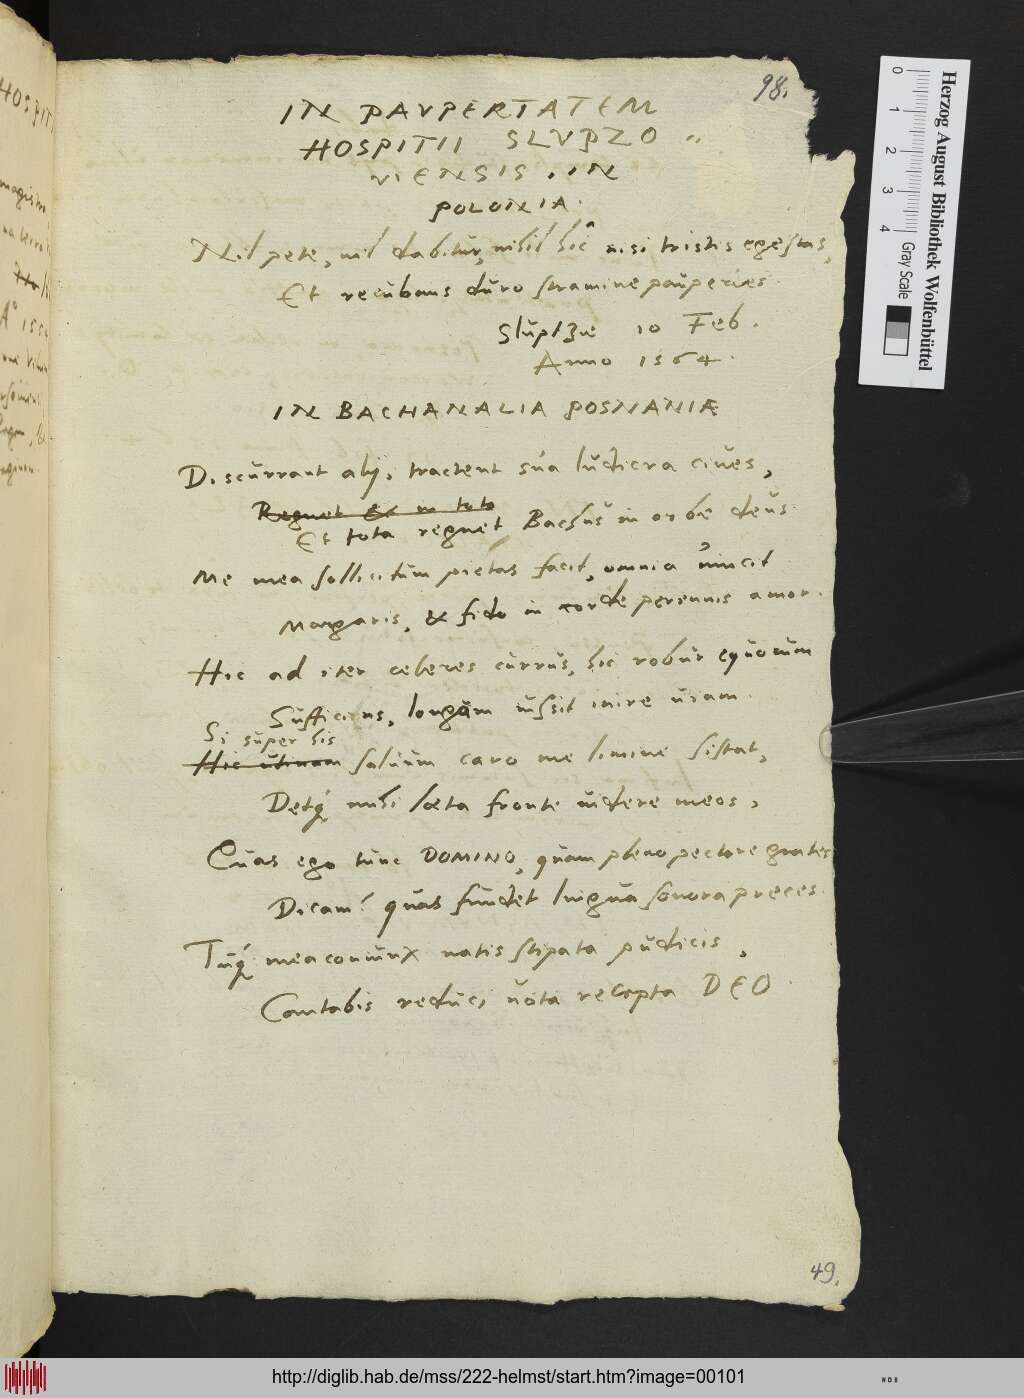 98.
IN PAVPERTATEM
HOSPITII SLVPZO
VIENSIS. IN
POLONIA.
Nil pete, nil dabitur, nihil hîc nisi tristis egestas,
Et recubans duro stramine pauperies.
Slupzæ 10 Feb.
Anno 1564.
IN BACHANALIA POSNANIÆ
Discurrant alij, tractent sua ludicra ciues,
Regnet & in toto
Et tota regnet Bachus in orbe deus.
Me mea sollicitum pietas facit, omnia vincit
Margaris, & fido in corde perennis amor.
Hic ad iter celeres currus, hic robur equorum
Sufficiens, longam iussit inire uiam.
Si super his
Hic utinam saluum caro me limine sistat,
Detq́ mihi læta fronte uidere meos,
Quas ego tunc DOMINO, quam pleno pectore grates
Dicam? quas fundet lingua sonora preces.
Tuq́ mea coniunx natis stipata pudicis,
Cantabis reduci uota recepta DEO.
49.
HOSPITI
magistro
Aº 155
Herzog August Bibliothek Wolfenbüttel
0 1 2 3 4
Gray Scale
http://diglib.hab.de/mss/222-helmst/start.htm?image=00101